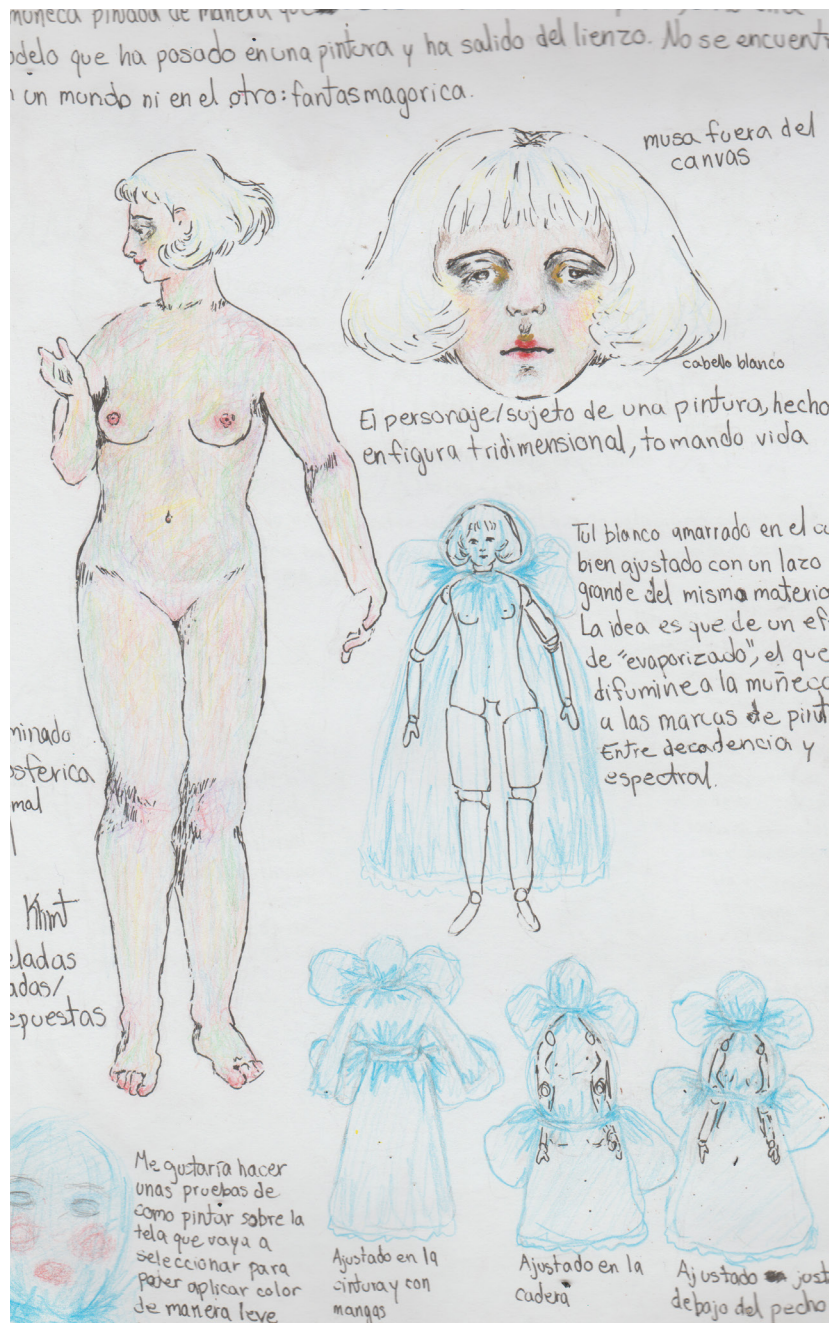 muñeca pintada de manera que
modelo que ha posado en una pintura y ha salido del lienzo. No se encuent
un mundo ni en el otro: fantasmagorica.
musa fuera del
canvas
cabello blanco
El personaje/sujeto de una pintura, hecho
en figura tridimensional, tomando vida
Tul blanco amarrado en el cu
bien ajustado con un lazo
grande del mismo materia
La idea es que de un ef
de "evaporizado", el que
difumine a la muñeca
a las marcas de pint
Entre decadencia y
espectral.
minado
osférica
mal
Klimt
eladas
adas/
epuestas
Me gustaría hacer
unas pruebas de
como pintar sobre la
tela que vaya a
seleccionar para
poder aplicar color
de manera leve
Ajustado en la
cintura y con
mangas
Ajustado en la
cadera
Ajustado just
debajo del pecho